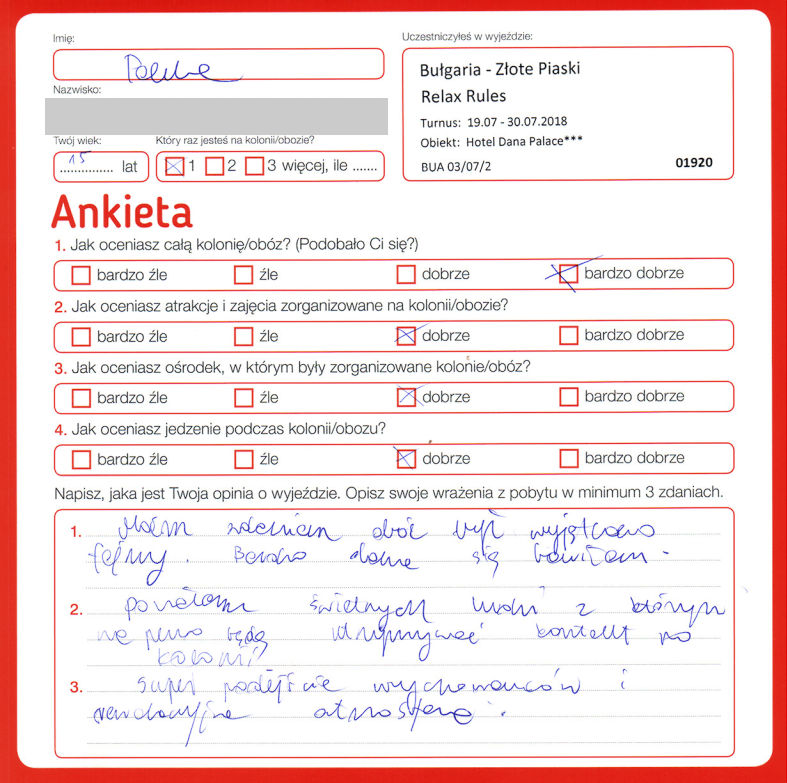 Imię:
Uczestniczyłeś w wyjeździe:
Bułgaria - Złote Piaski
Nazwisko:
Relax Rules
Turnus: 19.07 - 30.07.2018
Obiekt: Hotel Dana Palace***
BUA 03/07/2 01920
Twój wiek: Który raz jesteś na kolonii/obozie?
15 lat 1 2 3 więcej, ile .......
Ankieta
1. Jak oceniasz całą kolonię/obóz? (Podobało Ci się?)
bardzo źle źle dobrze bardzo dobrze
2. Jak oceniasz atrakcje i zajęcia zorganizowane na kolonii/obozie?
bardzo źle źle dobrze bardzo dobrze
3. Jak oceniasz ośrodek, w którym były zorganizowane kolonie/obóz?
bardzo źle źle dobrze bardzo dobrze
4. Jak oceniasz jedzenie podczas kolonii/obozu?
bardzo źle źle dobrze bardzo dobrze
Napisz, jaka jest Twoja opinia o wyjeździe. Opisz swoje wrażenia z pobytu w minimum 3 zdaniach.
1. Moim zdaniem obóz był wyjątkowo
fajny. Bardzo dobrze się bawiłam.
2. poznałam świetnych ludzi z którymi
na pewno będę utrzymywać kontakt po
kolonii
3. super podejście wychowawców i
rewelacyjna atmosfera.